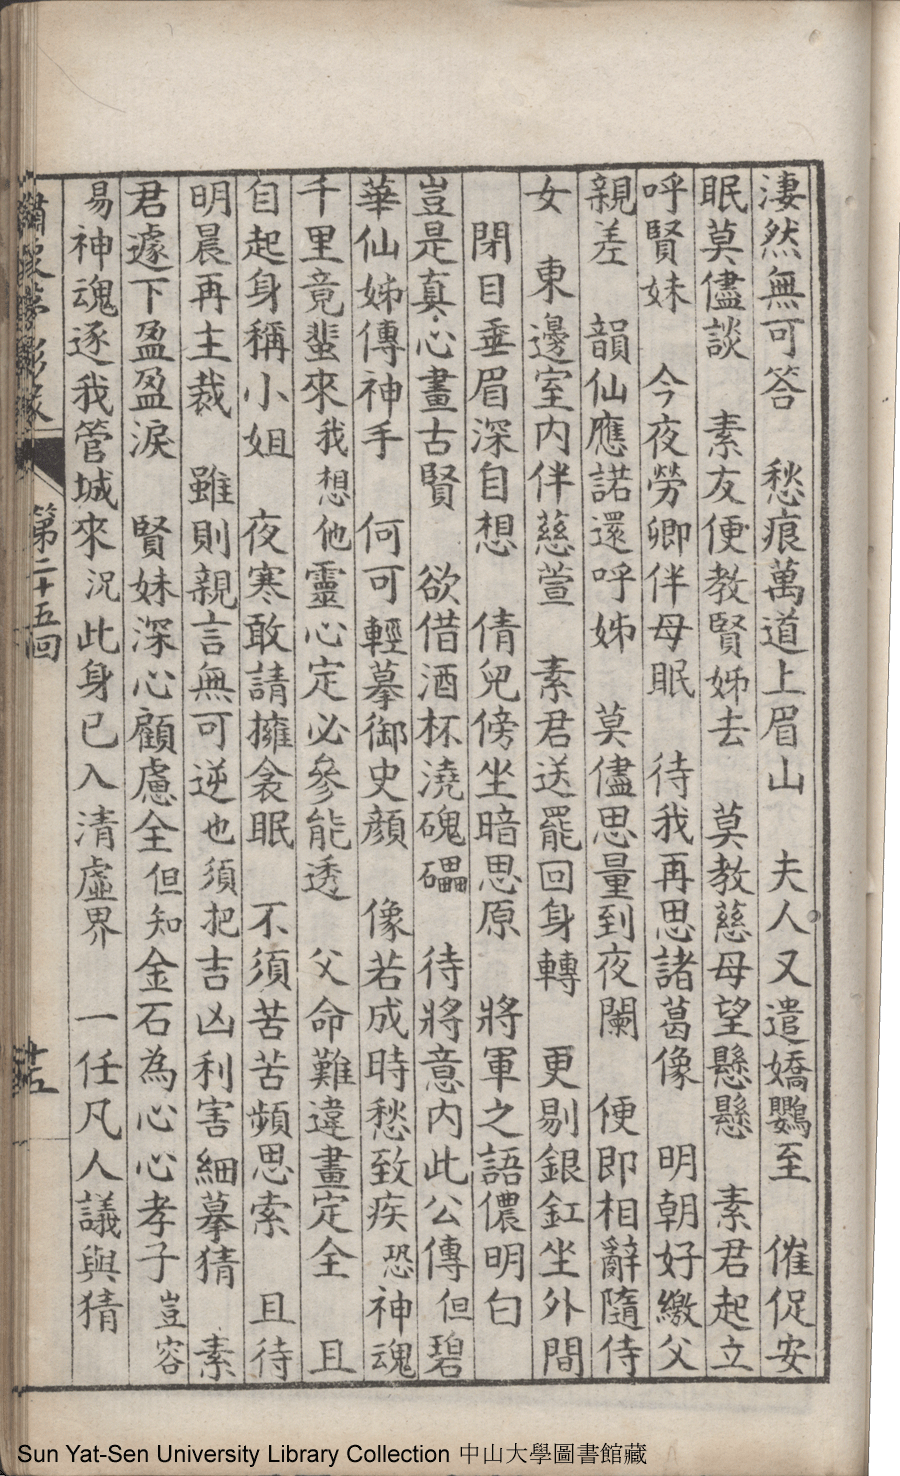 淒然無可答　愁痕萬道上眉山　夫人又遣嬌鸚至　催促安
眠莫儘談　素友便教賢姊去　莫教慈母望懸懸　素君起立
呼賢妹　今夜勞卿伴母眠　待我再思諸葛像　明朝好繳父
親差　韻仙應諾還呼姊　莫儘思量到夜闌　便即相辭隨侍
女　東邊室內伴慈萱　素君送罷回身轉　更剔銀釭坐外間
閉目垂眉深自想　倩兒傍坐暗思原　將軍之語儂明白
豈是真心畫古賢　欲借酒杯澆磈礧　待將意內此公傳但碧
華仙姊傳神手　何可輕摹御史顏　像若成時愁致疾恐神魂
千里竟蜚來我想他靈心定必參能透　父命難違畫定全　且
自起身稱小姐　夜寒敢請擁衾眠　不須苦苦頻思索　且待
明晨再主裁　雖則親言無可逆也須把吉凶利害細摹猜　素
君遽下盈盈淚　賢妹深心顧慮全但知金石為心心孝子豈容
易神魂逐我管城來況此身已入清虛界　一任凡人議與猜
第二十五回
Sun Yat-Sen University Library Collection 中山大學圖書館藏